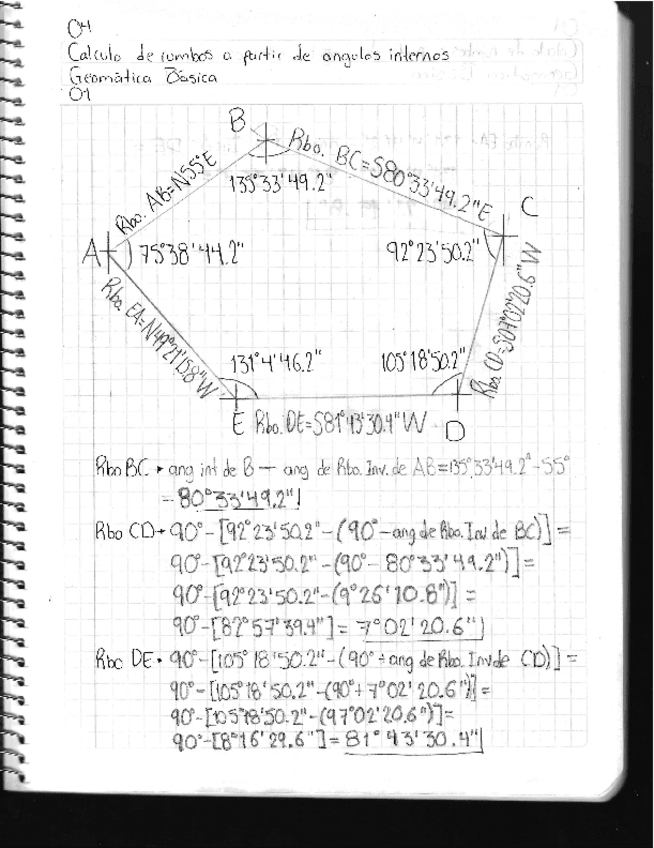 04
Calculo de rumbos a partir de angulos internos
Geomática Básica
01
B
Rbo. AB=N55°E
Rbo. BC=S80°33'49.2"E
135°33'49.2"
C
A
75°38'44.2"
92°23'50.2"
Rbo. EA=N49°21'15.8"W
Rbo. CD=S07°02'20.6"W
131°4'46.2"
105°18'50.2"
E
Rbo. DE=S81°43'30.4"W
D
Rbo BC • ang int de B - ang de Rbo. Inv. de AB=135°33'49.2"-55°
=80°33'49.2"
Rbo CD • 90°-[92°23'50.2"-(90°-ang de Rbo. Inv de BC)]=
90°-[92°23'50.2"-(90°-80°33'49.2")]=
90°-[92°23'50.2"-(9°26'10.8")]=
90°-[82°57'39.4"]=7°02'20.6"
Rbo DE • 90°-[105°18'50.2"-(90°+ang de Rbo. Inv de CD)]=
90°-[105°18'50.2"-(90°+7°02'20.6")]=
90°-[105°18'50.2"-(97°02'20.6")]=
90°-[8°16'29.6"]=81°43'30.4"